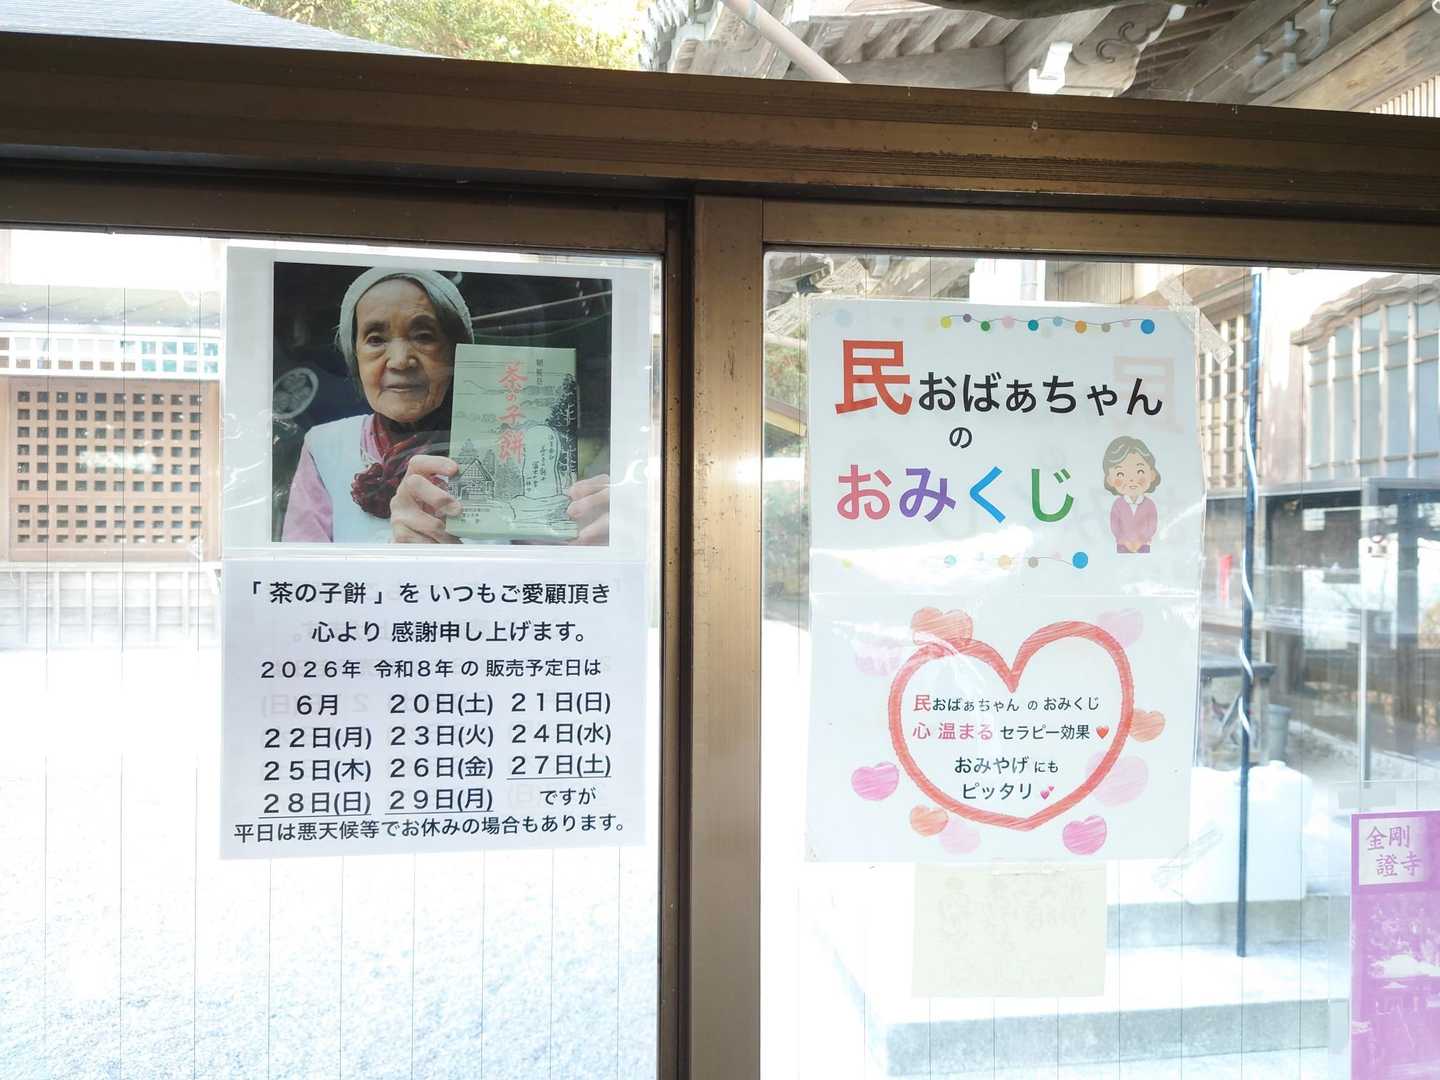 茶の子餅
「 茶の子餅 」 を いつもご愛顧頂き
心より 感謝申し上げます。
２０２６年 令和８年 の 販売予定日は
６月 ２０日(土) ２１日(日)
２２日(月) ２３日(火) ２４日(水)
２５日(木) ２６日(金) ２７日(土)
２８日(日) ２９日(月) ですが
平日は悪天候等でお休みの場合もあります。
民おばぁちゃん
の
おみくじ
民おばぁちゃん の おみくじ
心 温まる セラピー効果
おみやげ にも
ピッタリ
金剛
證寺